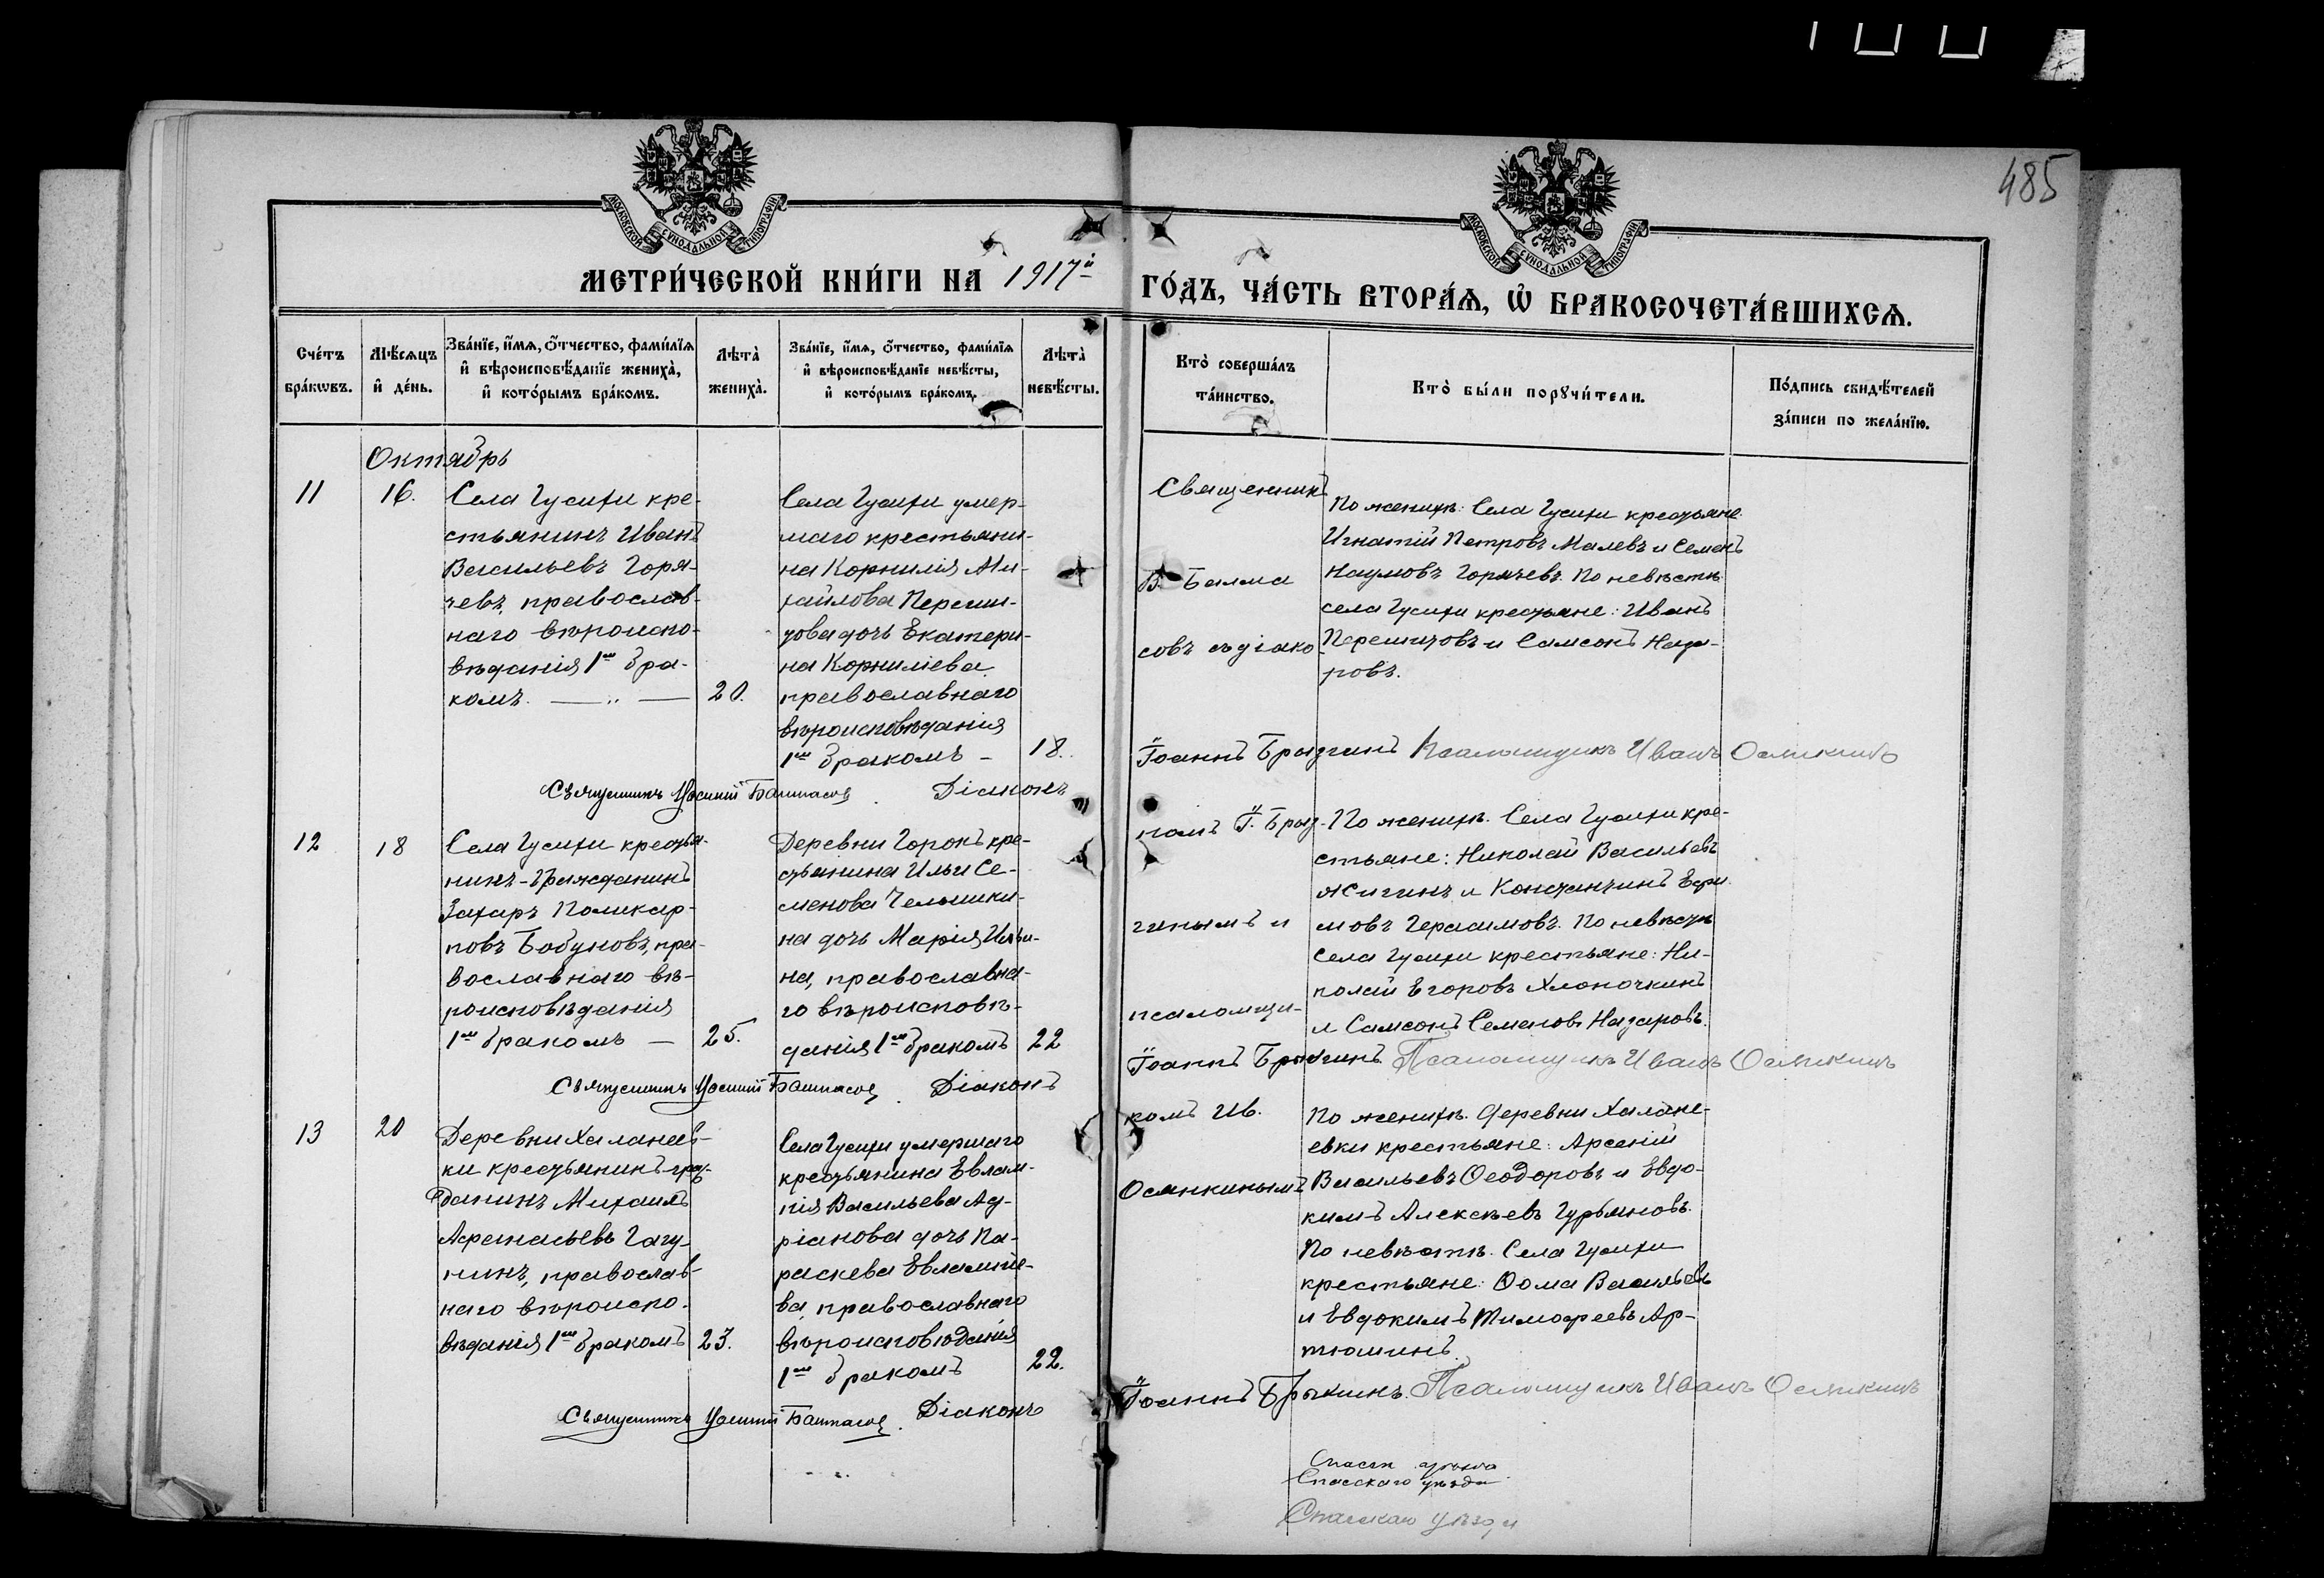 485
МОСКОВСКОЙ СѴНОДАЛЬНОЙ ТИПОГРАФІИ
МОСКОВСКОЙ СѴНОДАЛЬНОЙ ТИПОГРАФІИ
МЕТРИ́ЧЕСКОЙ КНИ́ГИ НА 1917й ГО́ДЪ, ЧА́СТЬ ВТОРА́Ѧ, Ѽ БРАКОСОЧЕТА́ВШИХСѦ.
Сче́тъ
бра́кѡвъ.
Мѣ́сѧцъ
и҆ де́нь.
Зва́нїе, и҆́мѧ, ѻ҆́тчество, фами́лїѧ
и҆ вѣроисповѣ́данїе жениха̀,
и҆ кото́рымъ бра́комъ.
Лѣта̀
жениха̀.
Зва́нїе, и҆́мѧ, ѻ҆́тчество, фами́лїѧ
и҆ вѣроисповѣ́данїе невѣ́сты,
и҆ кото́рымъ бра́комъ.
Лѣта̀
невѣ́сты.
Кто̀ соверша́лъ
та́инство.
Кто̀ бы́ли порꙋчи́тели.
По́дпись свидѣ́телей
за́писи по жела́нїю.
Октябрь
11
16.
Села Гусихи кре-
стьянинъ Иванъ
Васильевъ Горя-
чевъ, православ-
наго вѣроиспо-
вѣданія 1мъ бра-
комъ.
20.
Села Гусихи умер-
шаго крестьяни-
на Корнилія Ми-
хайлова
дочь Екатери-
на Корниліева
православнаго
вѣроисповѣданія
1мъ бракомъ
18.
Священникъ
В. Балма
совъ съ діако
По женихѣ: Села Гусихи крестьяне
Игнатій Петровъ Малевъ и Семенъ
Наумовъ Горячевъ. По невѣстѣ
села Гусихи крестьяне: Иванъ
и Самсонъ Наза-
ровъ.
Священникъ Діаконъ
Іоаннъ Брызгинъ Псаломщикъ Иванъ Осянкинъ
12
18
Села Гусихи крестья-
нинъ-гражданинъ
Захаръ Поликар-
повъ Бобуновъ, пра-
вославнаго вѣ-
роисповѣданія
1мъ бракомъ —
25.
Деревни Горокъ кре-
стьянина Ильи Се-
менова
на дочь Марія Ильи-
на, православна-
го вѣроисповѣ-
данія 1мъ бракомъ
22
номъ І. Брыз-
гинымъ и
псаломщи-
По женихѣ. Села Гусихи кре-
стьяне: Николай Васильевъ
Жигинъ и Константинъ Ефи-
мовъ Герасимовъ. По невѣстѣ
села Гусихи крестьяне: Ни-
колай Егоровъ Хлопочкинъ
и Самсонъ Семеновъ Назаровъ.
Священникъ Діаконъ
Іоаннъ Брызгинъ Псаломщикъ Иванъ Осянкинъ
13
20
Деревни Халанеев-
ки крестьянинъ-гра-
жданинъ Михаилъ
Афанасьевъ Гагу-
нинъ, православ-
наго вѣроиспо-
вѣданія 1мъ бракомъ
23.
Села Гусихи умершаго
крестьянина Евлам-
пія Васильева Ад-
ріанова дочь Па-
раскева Евлампіе-
ва, православнаго
вѣроисповѣданія
1мъ бракомъ
22.
комъ Ив.
Осянкинымъ
По женихѣ. Деревни Халане-
евки крестьяне: Арсеній
Васильевъ Ѳеодоровъ и Евдо-
кимъ Алексѣевъ Гурьяновъ.
По невѣстѣ. Села Гусихи
крестьяне: Ѳома Васильевъ
и Евдокимъ Тимофеевъ Ар-
тюшинъ.
Священникъ Діаконъ
Іоаннъ Псаломщикъ Иванъ Осянкинъ
Спасск уѣзда
Спасскаго уѣзда
Спасскаго уѣзда